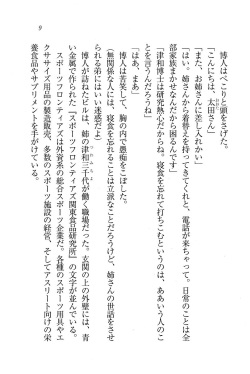 9
博人はぺこりと頭をさげた。
「こんにちは、太田さん」
「また、お姉さんに差し入れかい」
「はい。姉さんから着替えを持ってきてくれと、電話が来ちゃって。日常のことは全
部家族まかせなんだから困るんです」
「津和博士は研究熱心だからね。寝食を忘れて打ちこむというのは、ああいう人のこ
とを言うんだろうね」
「はあ、まあ」
博人は苦笑して、胸の内で愚痴をこぼした。
（無関係な人には、寝食を忘れることは立派なことだろうけど、姉さんの世話をさせ
られる弟にはいい迷惑だよ）
博人が訪ねたビルは、姉の津和三千代が働く職場だった。玄関の上の外壁には、青
い金属で作られた『スポーツフロンティアズ関東食品研究所』の文字が並んでいる。
スポーツフロンティアズは外資系の総合スポーツ企業だ。各種のスポーツ用具やエ
クササイズ用品の製造販売、多数のスポーツ施設の経営、そしてアスリート向けの栄
養食品やサプリメントを手がけている。